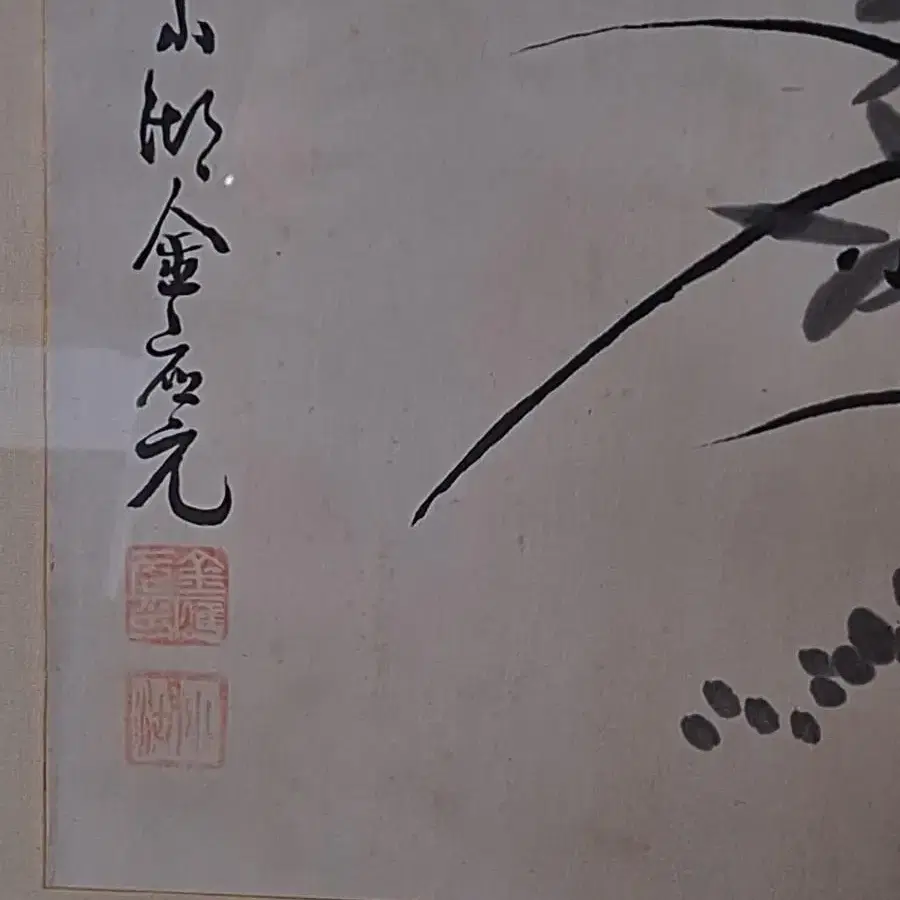 小湖金應元
金應元印
小湖